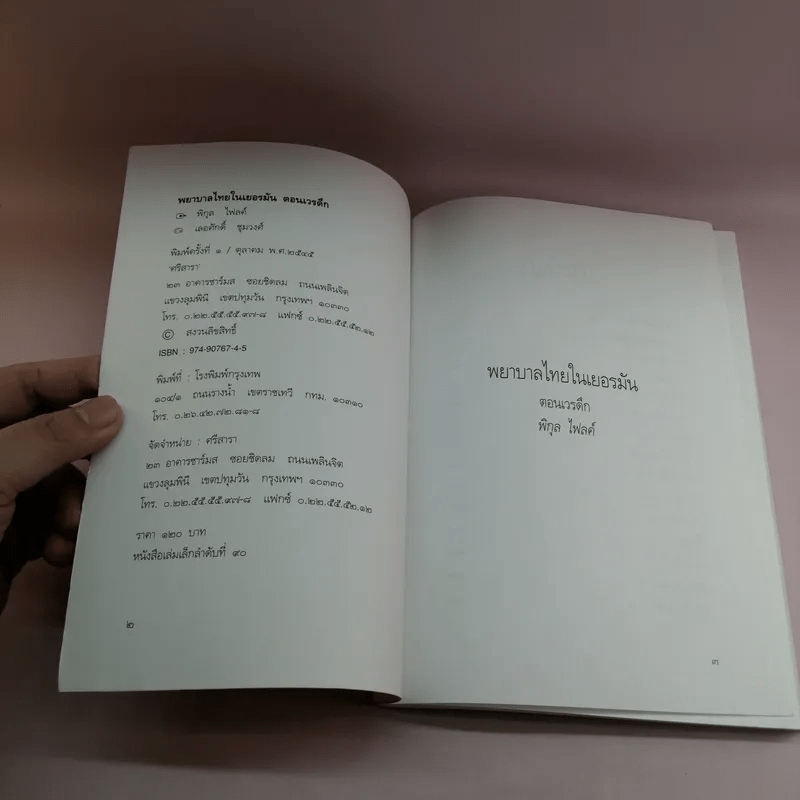 พยาบาลไทยในเยอรมัน ตอนเวรดึก
พิกุล ไฟลค์
เลอศักดิ์ ชุมวงศ์
พิมพ์ครั้งที่ ๑ / ตุลาคม พ.ศ.๒๕๔๕
'ศรีสารา'
๒๓ อาคารชาร์มส ซอยชิดลม ถนนเพลินจิต
แขวงลุมพินี เขตปทุมวัน กรุงเทพฯ ๑๐๓๓๐
โทร. ๐.๒๒.๕๕.๕๕.๙๗-๘ แฟกซ์ ๐.๒๒.๕๕.๕๒.๑๒
© สงวนลิขสิทธิ์
ISBN : 974-90767-4-5
พิมพ์ที่ : โรงพิมพ์กรุงเทพ
๑๐๔/๑ ถนนรางน้ำ เขตราชเทวี กทม. ๑๐๓๑๐
โทร. ๐.๒๖.๔๒.๗๒.๘๑-๘
จัดจำหน่าย : ศรีสารา
๒๓ อาคารชาร์มส ซอยชิดลม ถนนเพลินจิต
แขวงลุมพินี เขตปทุมวัน กรุงเทพฯ ๑๐๓๓๐
โทร. ๐.๒๒.๕๕.๕๕.๙๗-๘ แฟกซ์ ๐.๒๒.๕๕.๕๒.๑๒
ราคา ๑๒๐ บาท
หนังสือเล่มเล็กลำดับที่ ๙๐
๒
พยาบาลไทยในเยอรมัน
ตอนเวรดึก
พิกุล ไฟลค์
๓